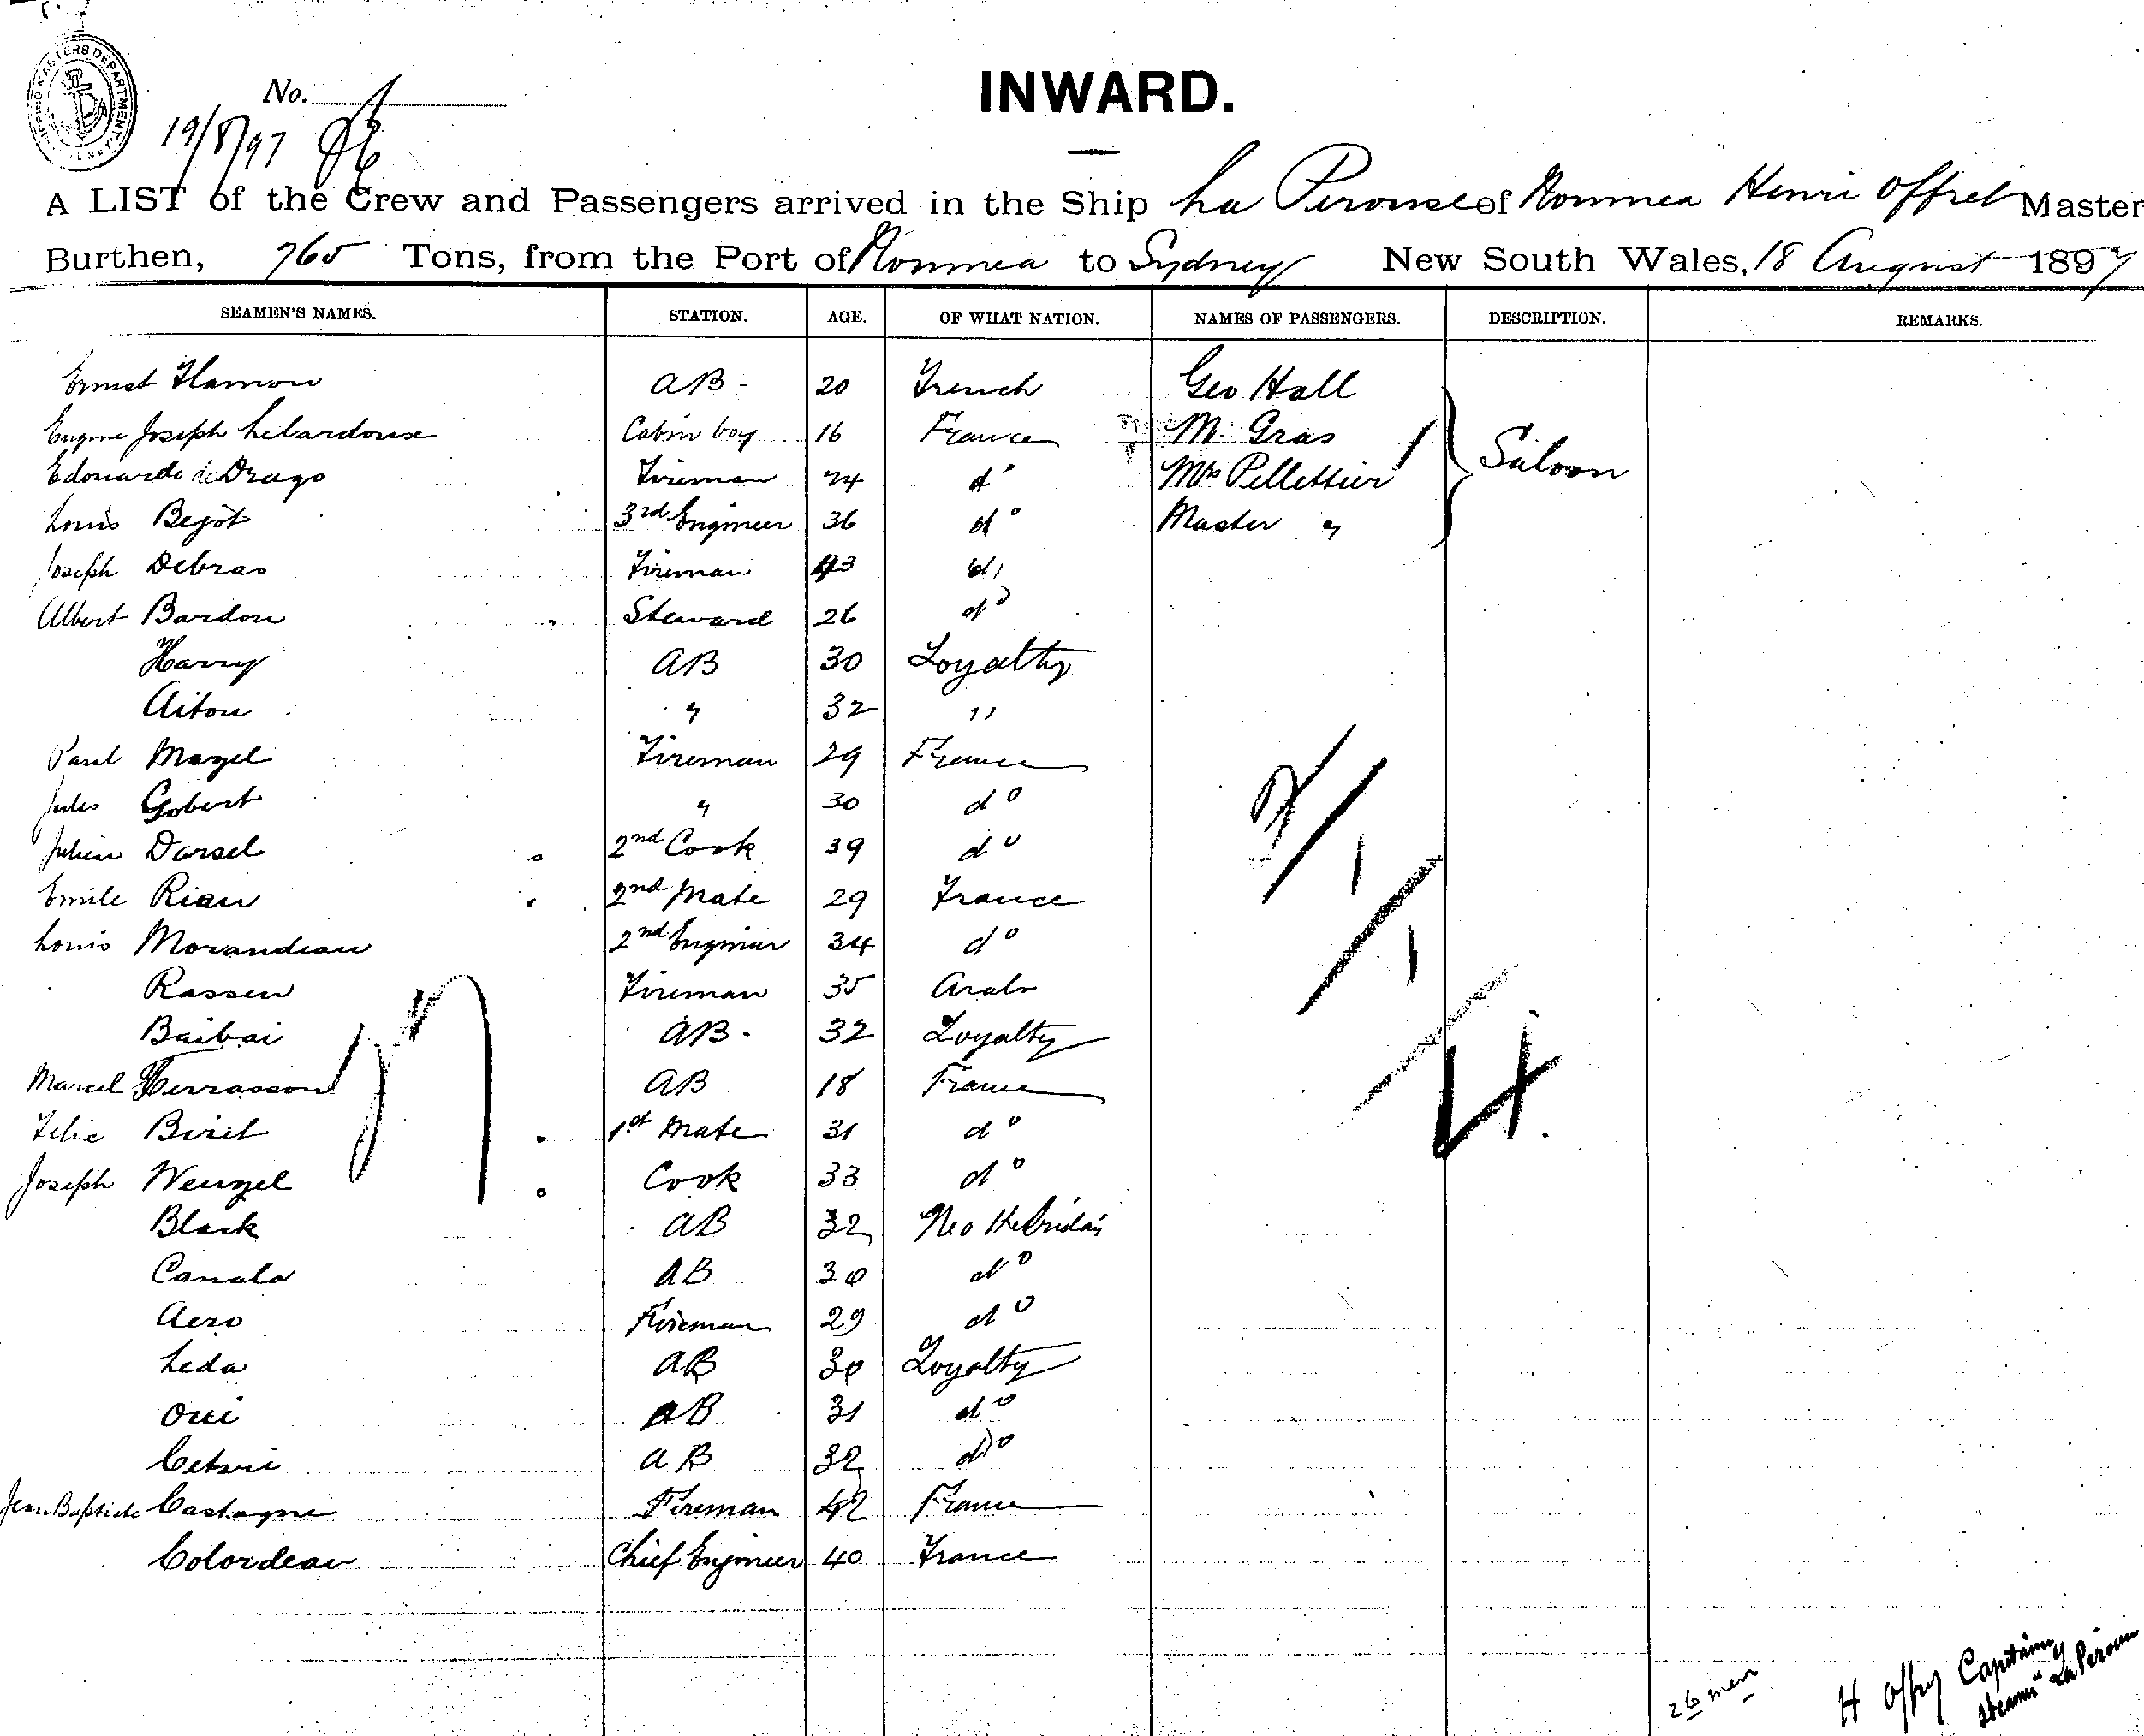 SHIPPING MASTERS DEPARTMENT
No.
19/8/97
INWARD.
A LIST of the Crew and Passengers arrived in the Ship La Perouse of Noumea Henri Offret Master
Burthen, 765 Tons, from the Port of Noumea to Sydney New South Wales, 18 August 1897
SEAMEN'S NAMES. STATION. AGE. OF WHAT NATION. NAMES OF PASSENGERS. DESCRIPTION. REMARKS.
Ernest Hamon AB - 20 French Geo Hall
Eugene Joseph Lelardouse Cabin boy 16 France M. Gras
Edouardo de Drago Fireman 24 do Mrs Pellettier Saloon
Louis Bejot 3rd Engineer 36 do Master "
Joseph Debras Fireman 43 do
Albert Bardou Steward 26 do
Harry AB 30 Loyalty
Aitou " 32 "
Paul Mazel Fireman 29 France
Jules Gobert " 30 do
Julien Darsel 2nd Cook 39 do
Emile Riau 2nd Mate 29 France
Louis Morandeau 2nd Engineer 34 do
Rassen Fireman 35 Arab
Baibai AB - 32 Loyalty
Marcel Terrasson AB 18 France
Felix Biret 1st Mate 31 do
Joseph Wenzel Cook 33 do
Black AB 32 Neo Hebridais
Canala AB 30 do
Aero Fireman 29 do
Leda AB 30 Loyalty
Oui AB 31 do
AB 32 do
Jean Baptiste Castagne Fireman 42 France
Colordeau Chief Engineer 40 France
4.
26 men
H Offret Capitaine
steamer "La Perouse